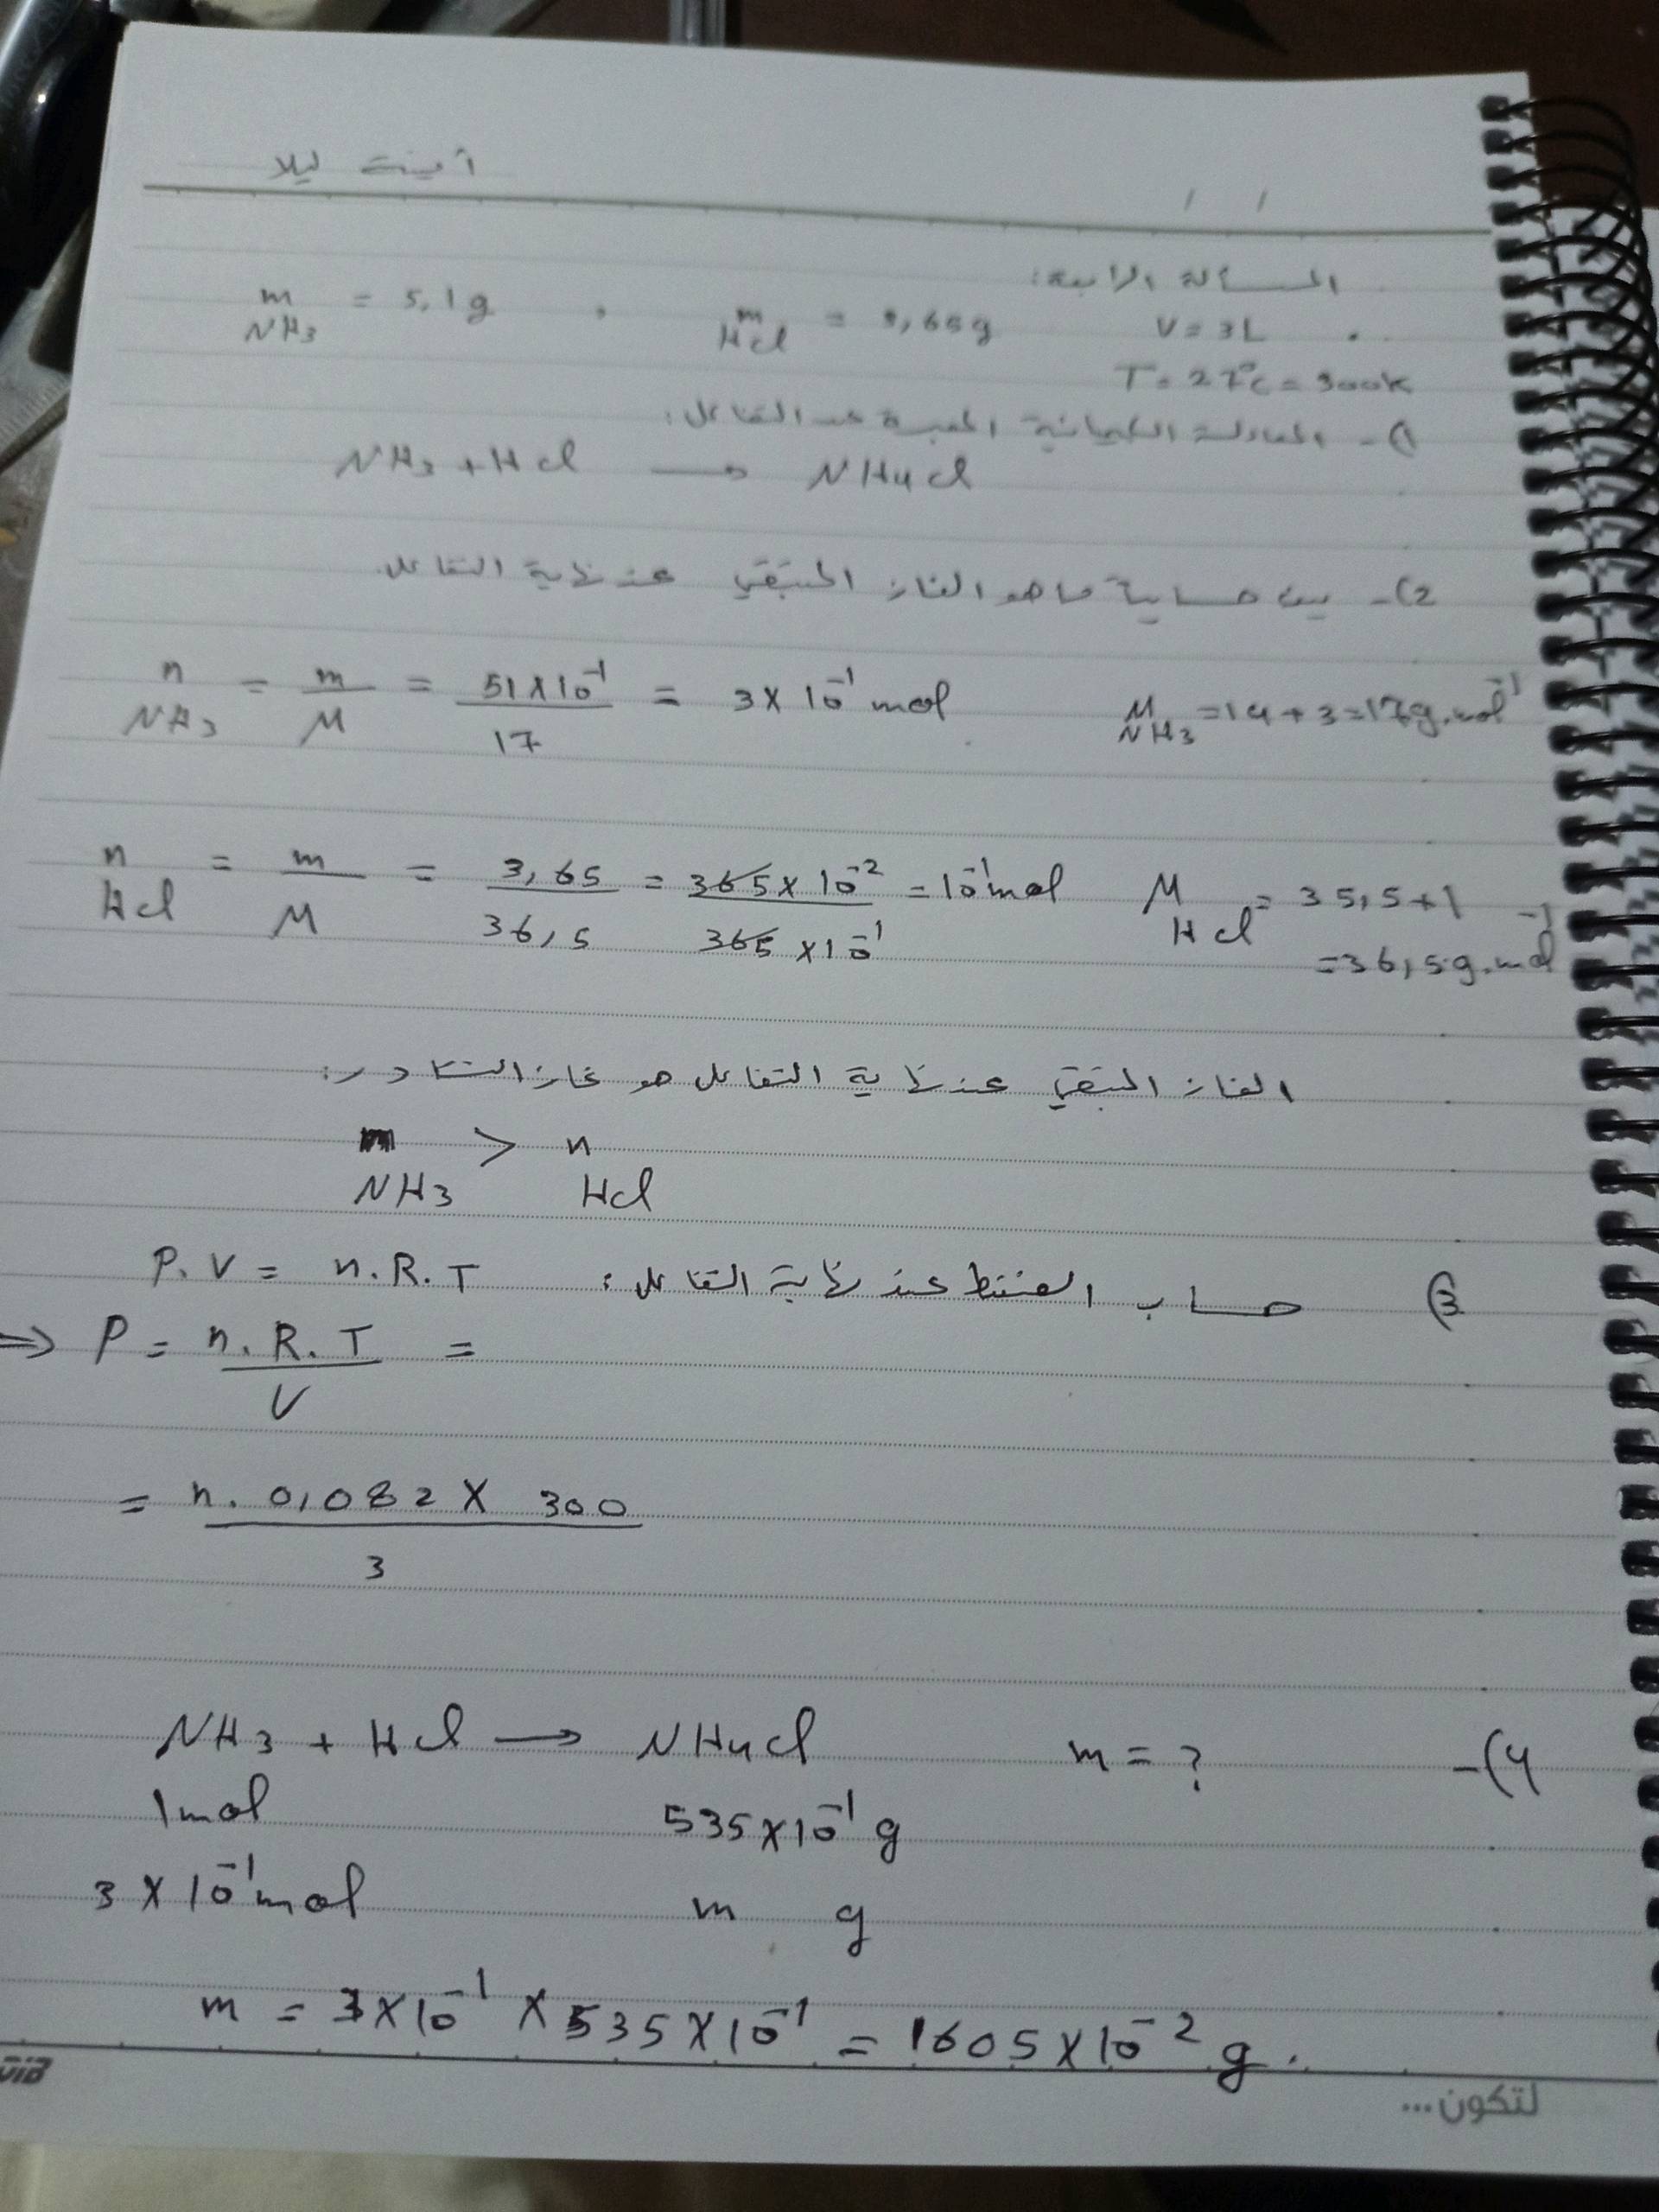 أمينة ليلا
/ /
المسألة الرابعة:
m NH3 = 5,1g , m Hcl = 3,65g V = 3L .
T = 27°c = 300k
1)- المعادلة الكيميائية المعبرة عن التفاعل:
NH3 + Hcl → NH4cl
2)- بين حسابياً ما هو الغاز المتبقي عند نهاية التفاعل.
n NH3 = m/M = 51x10^-1/17 = 3x10^-1 mol M NH3 = 14+3=17g.mol^-1
n Hcl = m/M = 3,65/36,5 = 365x10^-2/365x10^-1 = 10^-1 mol M Hcl = 35,5+1
=36,5g.mol^-1
الغاز المتبقي عند نهاية التفاعل هو غاز النشادر:
n NH3 > n Hcl
3) حساب الضغط عند نهاية التفاعل: P.V = n.R.T
⇒ P = n.R.T/V =
= n.0,082 x 300/3
4)- m = ? NH3 + Hcl → NH4cl
1mol 535x10^-1 g
3x10^-1 mol m g
m = 3x10^-1 x 535x10^-1 = 1605x10^-2 g.
لتكون...